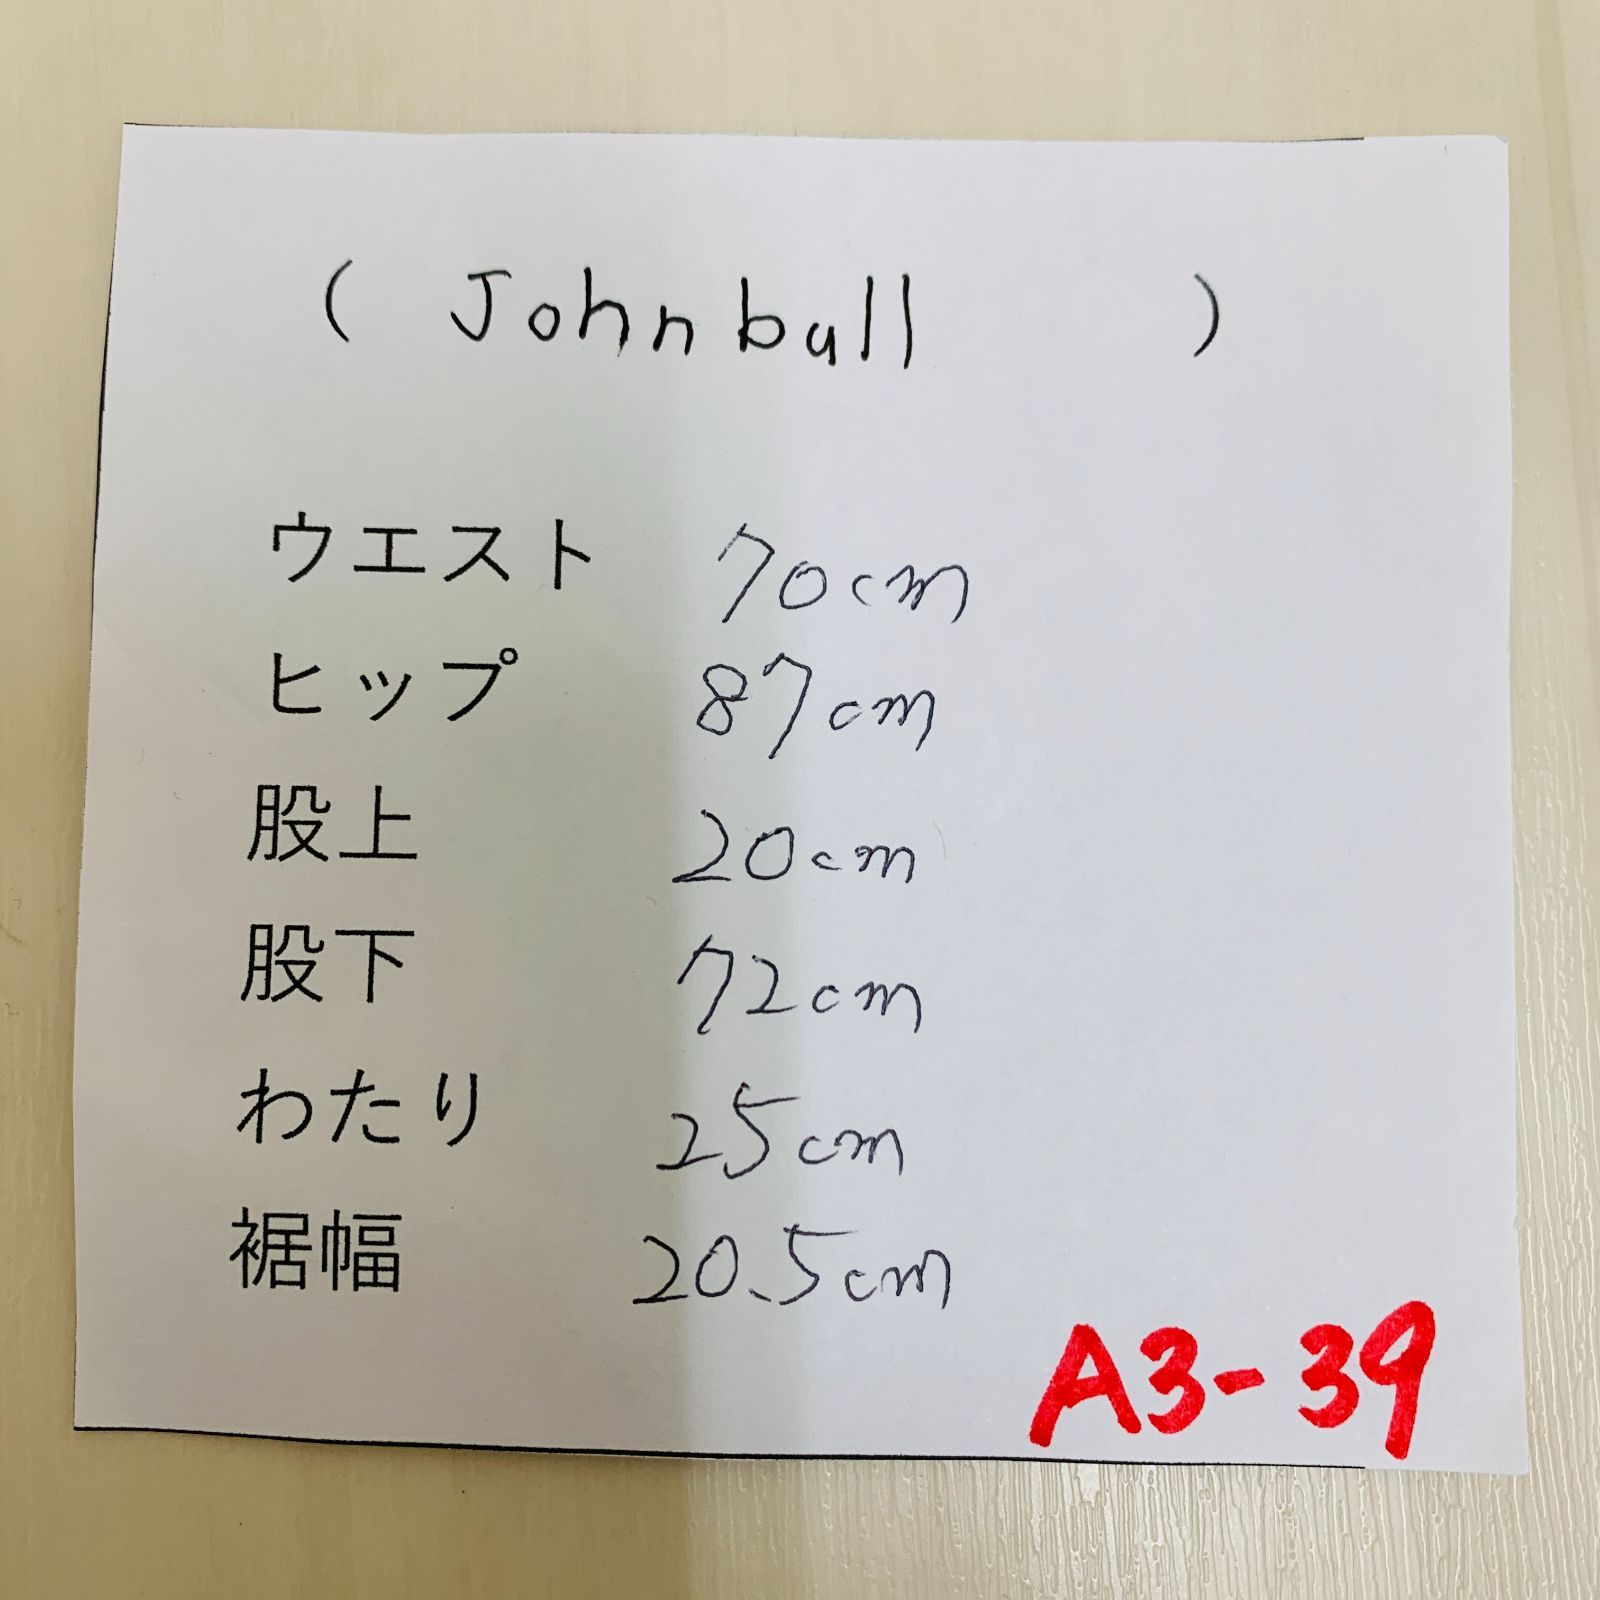 ( Johnbull )
ウエスト 70cm
ヒップ 87cm
股上 20cm
股下 72cm
わたり 25cm
裾幅 20.5cm
A3-39